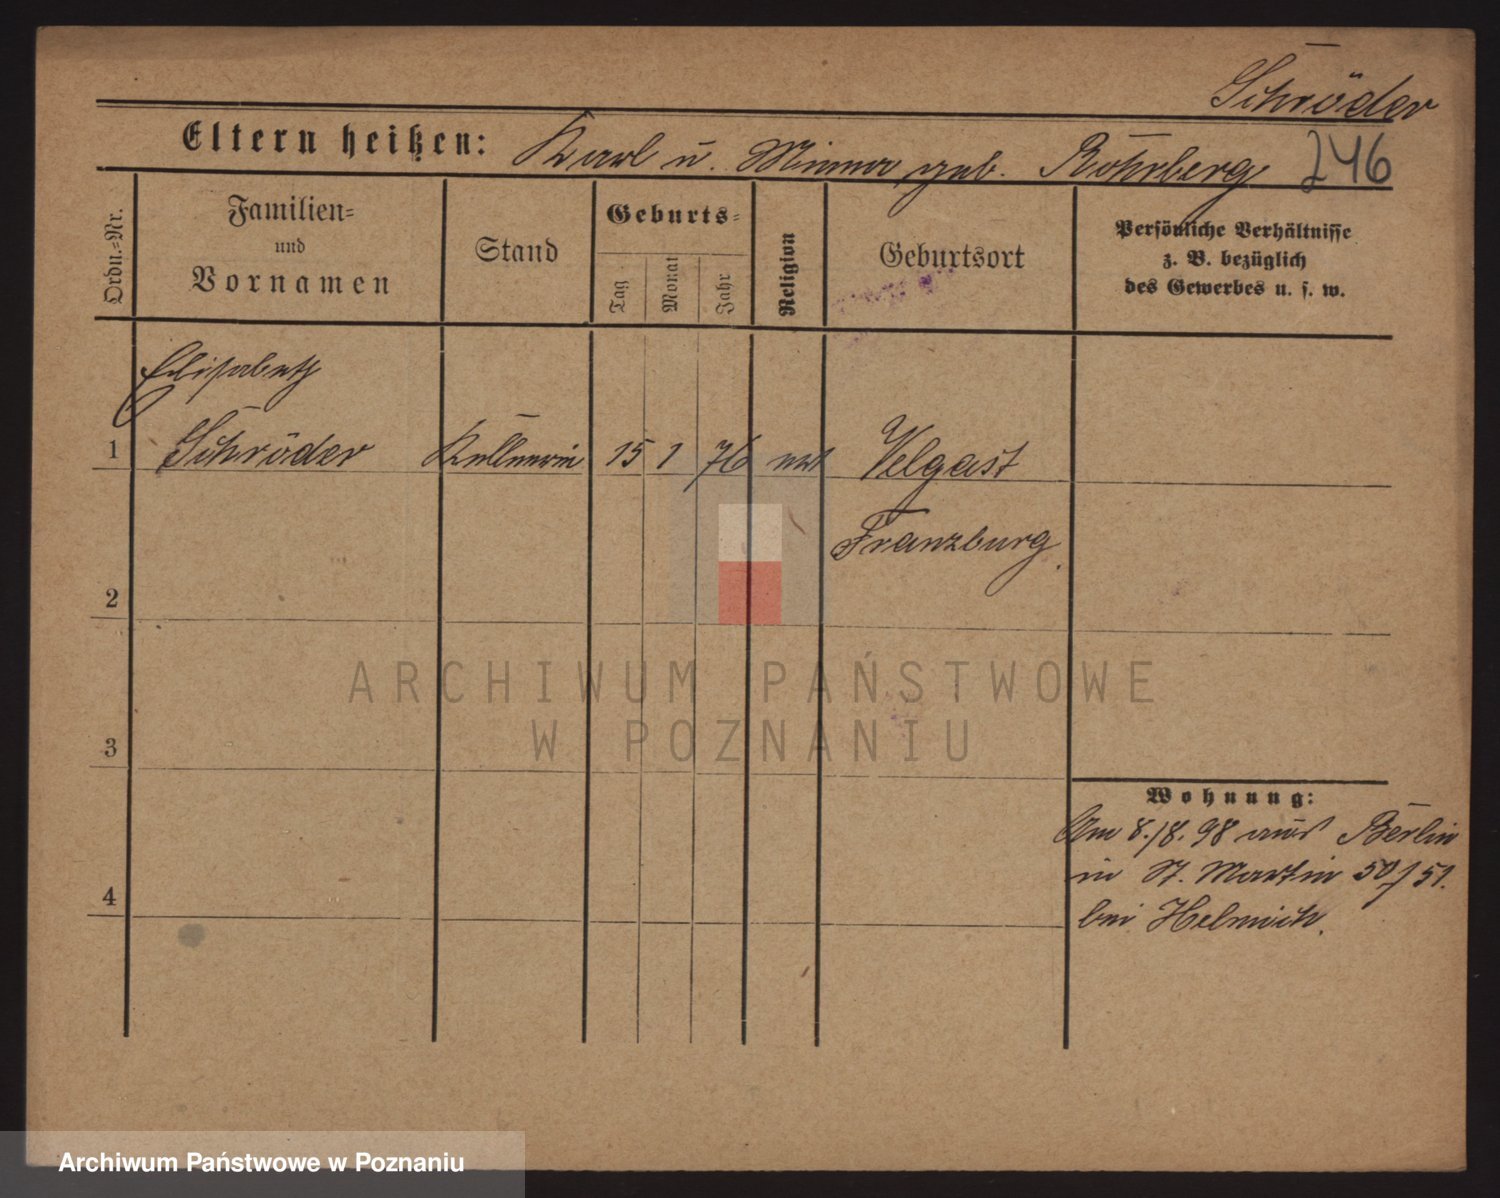 Schröder
Eltern heißen: Karl u. Minna geb. Rohrberg 246
Ordn.=Nr.
Familien=
und
Vornamen
Stand
Geburts=
Tag
Monat
Jahr
Religion
Geburtsort
Persönliche Verhältnisse
z. B. bezüglich
des Gewerbes u. s. w.
Elisabeth
1 Schröder Kellnerin 15 1 76 Velgast
Franzburg.
2
ARCHIWUM PAŃSTWOWE
W POZNANIU
3
Wohnung:
Am 8./8. 98 aus Berlin
in St. Martin 50/51.
4
bei Helmich.
Archiwum Państwowe w Poznaniu